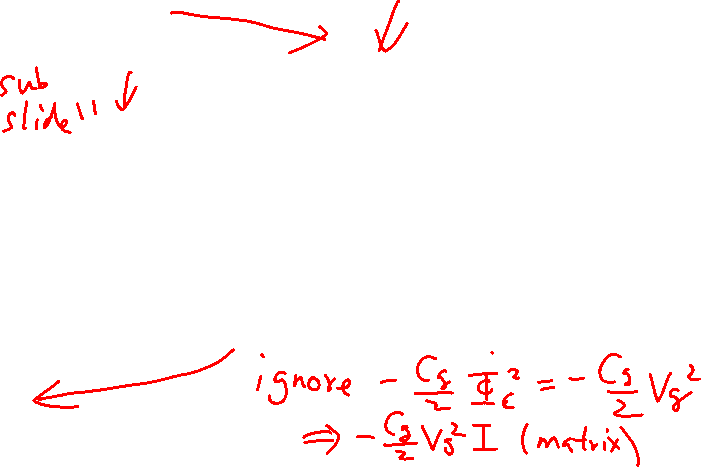 sub
slide 11
ignore - C_g/2 Φ̇_ε² = - C_g/2 V_g²
⇒ - C_g/2 V_g² I (matrix)